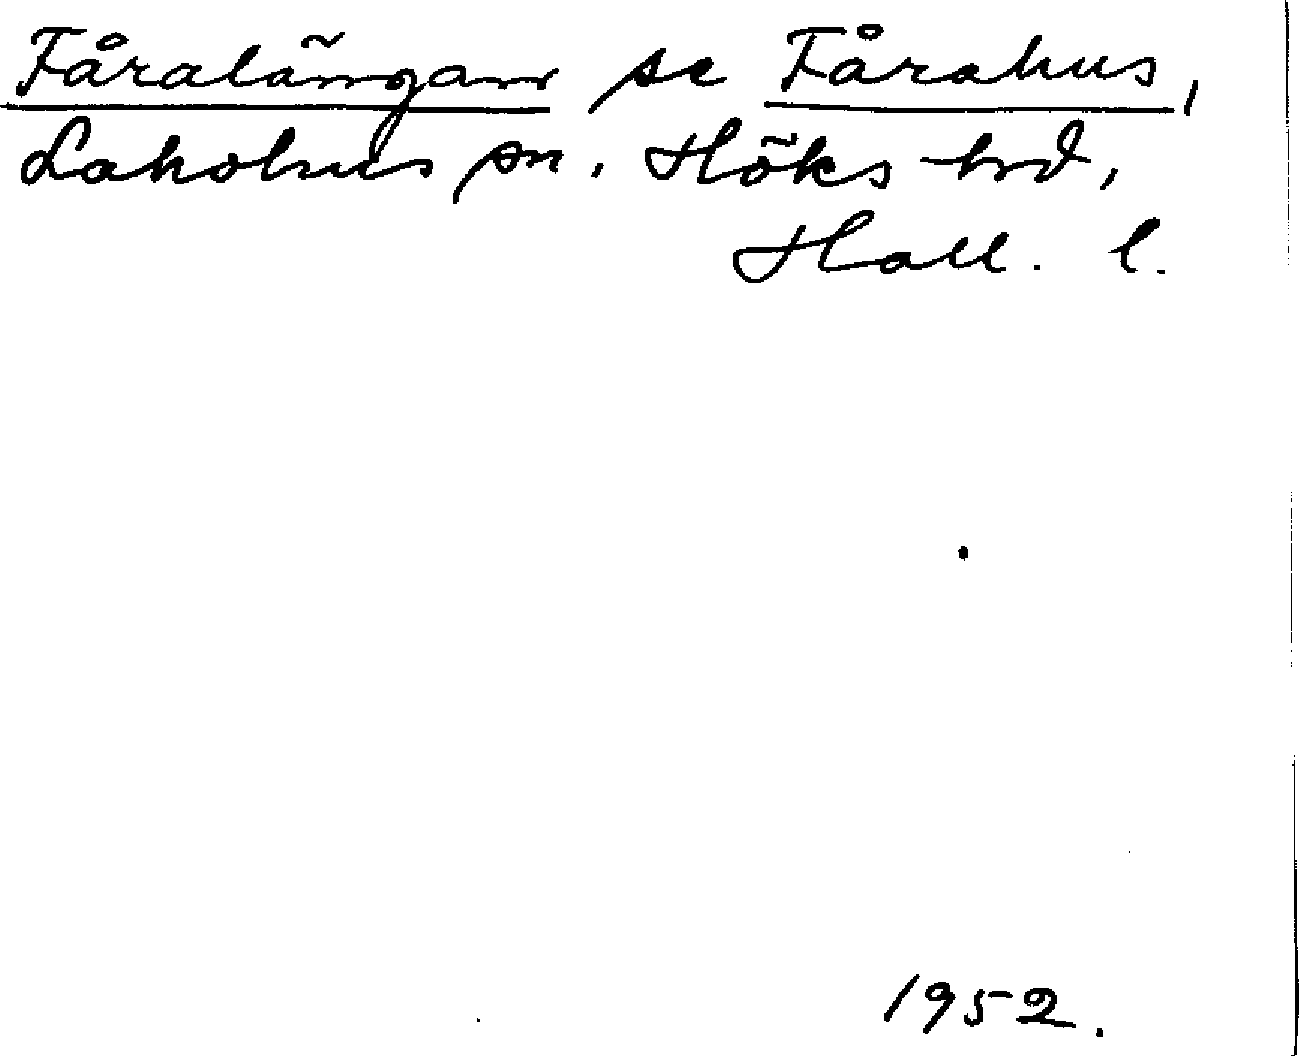 Fåralängan se Fårahus,
Laholms sn. Höks hrd,
Hall. l.
1952.